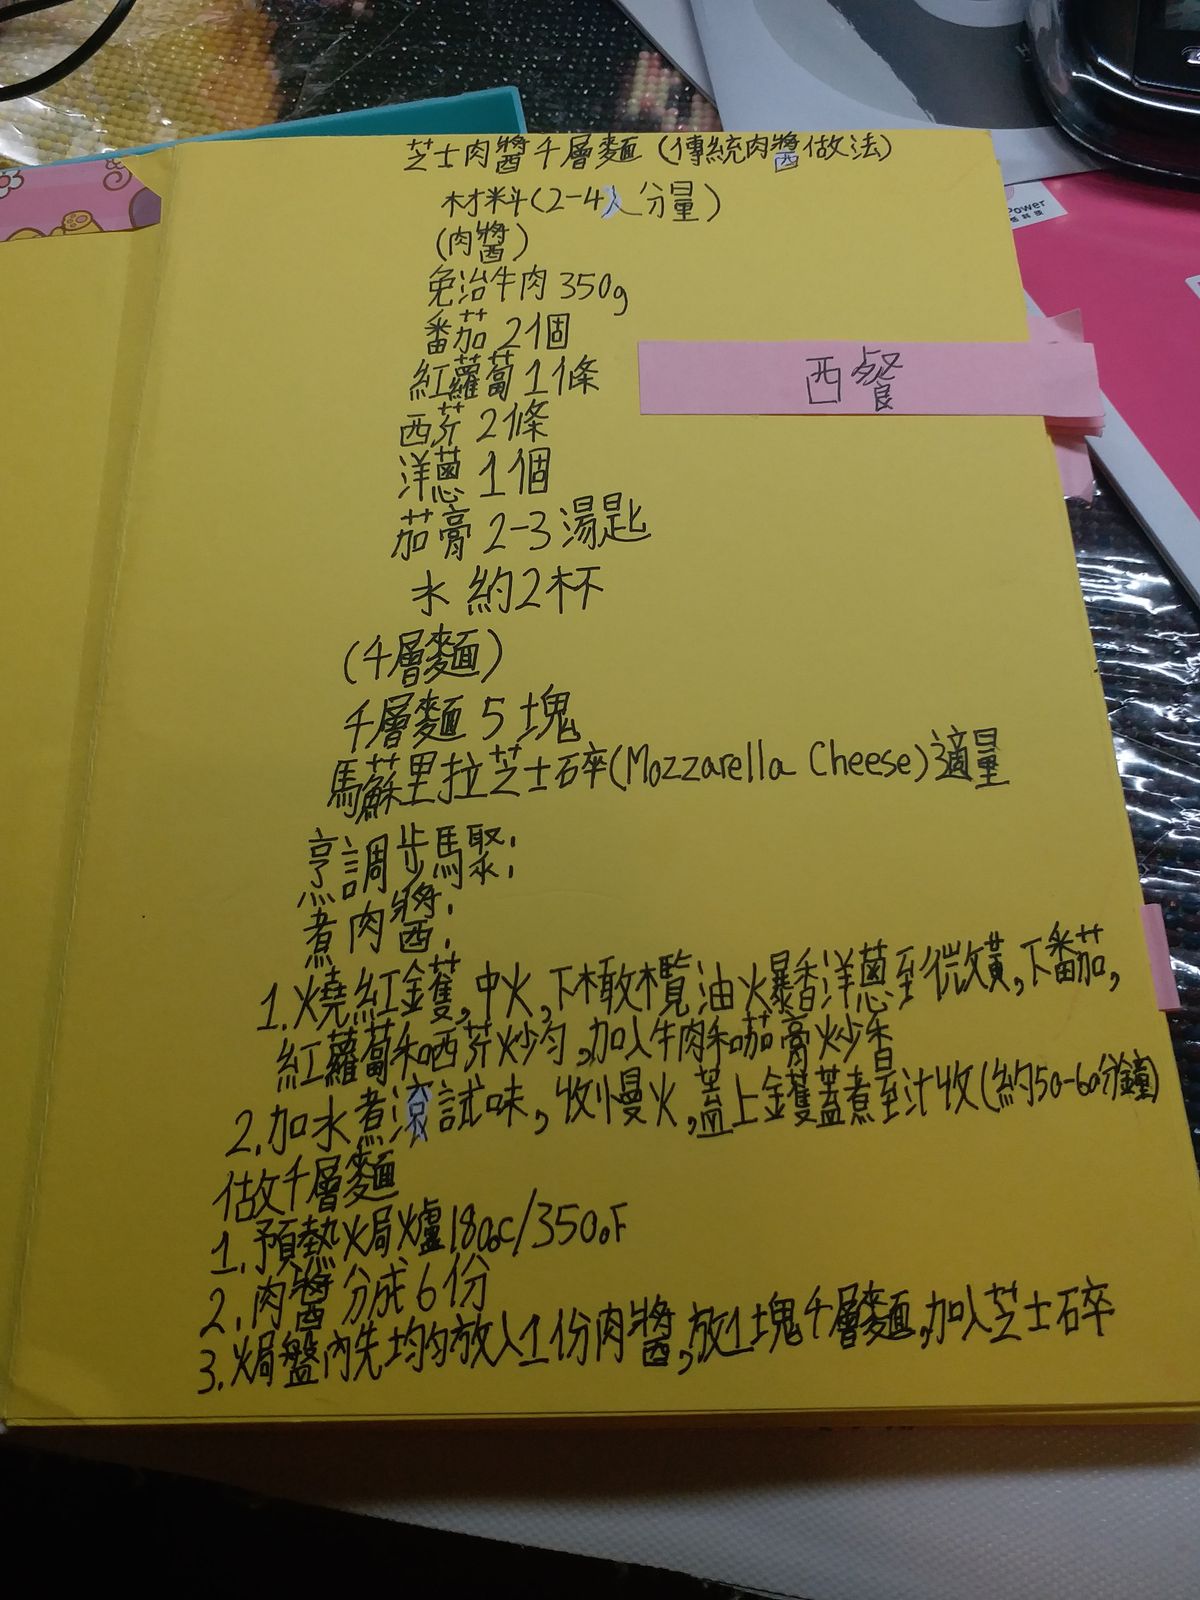 芝士肉醬千層麵(傳統肉醬做法)
材料(2-4人分量)
(肉醬)
免治牛肉 350g
番茄 2個
紅蘿蔔 1條
西芹 2條
洋蔥 1個
茄膏 2-3湯匙
水 約2杯
(千層麵)
千層麵 5塊
馬蘇里拉芝士碎(Mozzarella Cheese)適量
烹調步驟:
煮肉醬:
1.燒紅鑊,中火,下橄欖油爆香洋蔥至微黃,下番茄,
紅蘿蔔和西芹炒勻,加入牛肉和茄膏炒香
2.加水煮滾試味,收慢火,蓋上鑊蓋煮至汁收(約50-60分鐘)
做千層麵
1.預熱焗爐180oC/350oF
2.肉醬分成6份
3.焗盤內先均勻放入1份肉醬,放1塊千層麵,加入芝士碎
西餐
Power